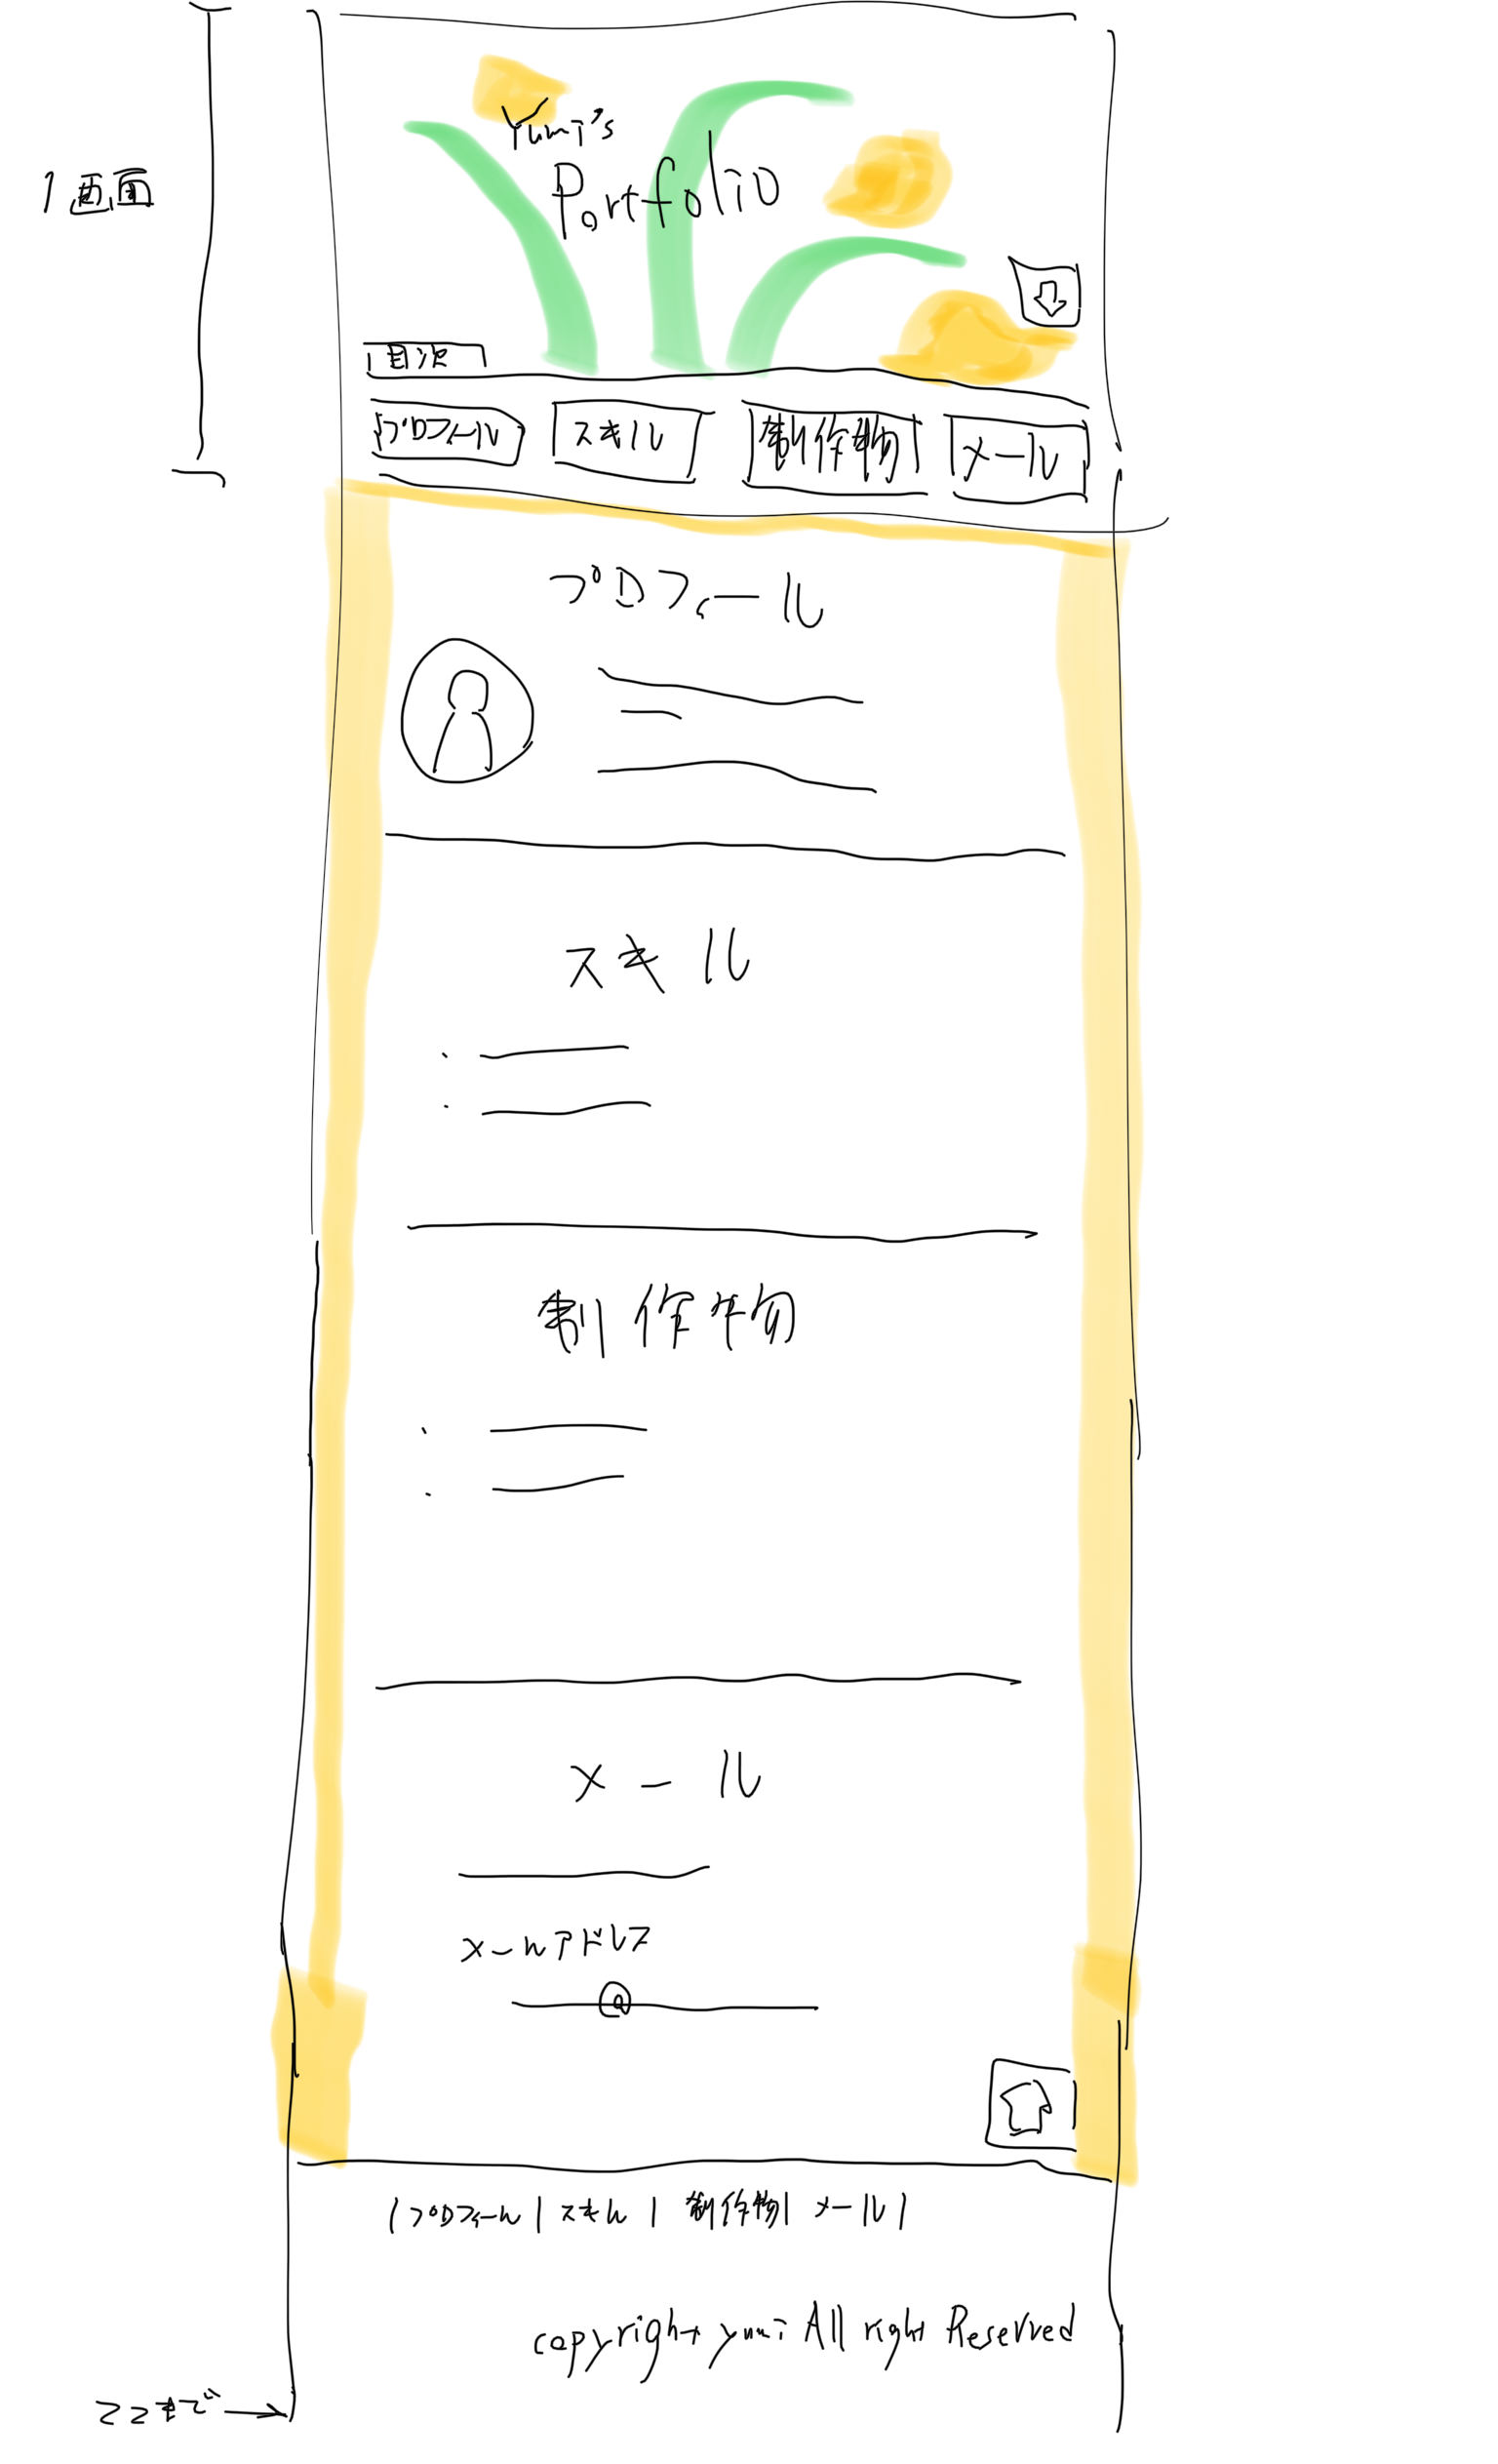 1画面
Yumi's
Portfolio
目次
プロフィール スキル 制作物 メール
プロフィール
スキル
制作物
メール
メールアドレス
@
|プロフィール|スキル|制作物|メール|
copyright yumi All right Reserved
ここまで→